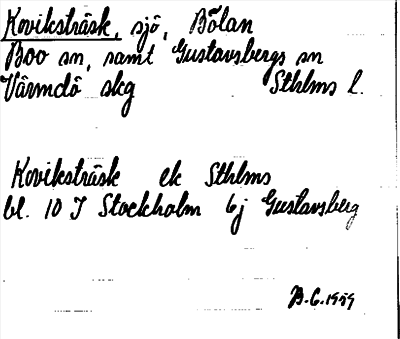 Koviksträsk, sjö, Bölan
Boo sn, samt Gustavsbergs sn
Värmdö skg Sthlms l.
Koviksträsk ek Sthlms
bl. 10 I Stockholm 6j Gustavsberg
B.G. 1959